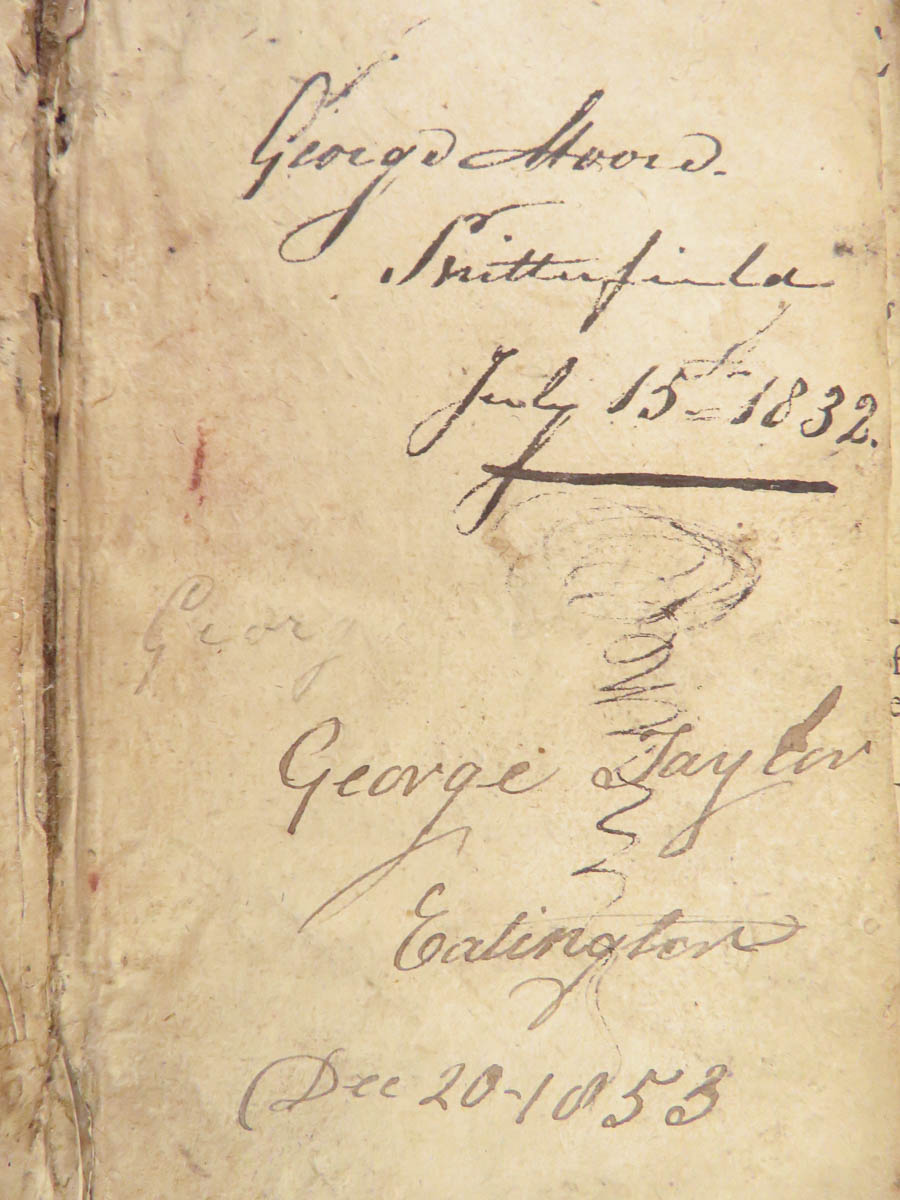 George Moore.
Snitterfield
July 15th 1832.
Georg
George Taylor
Eatington
Dec 20-1853